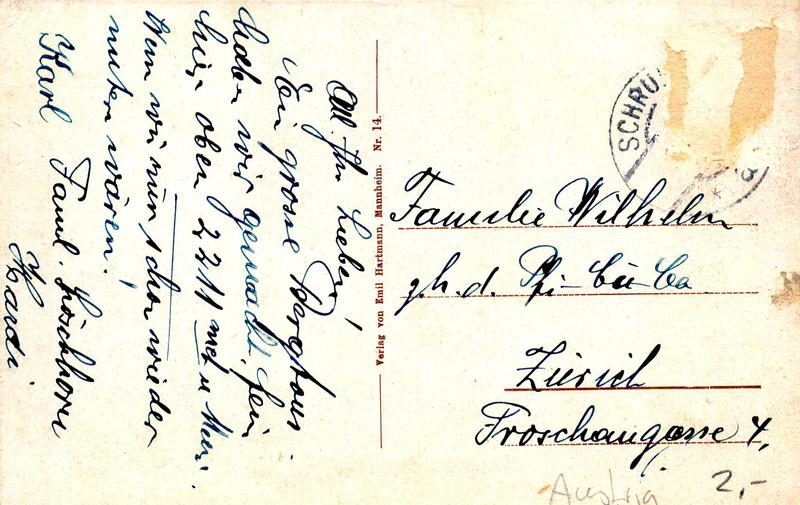 All Ihr Lieben!
Ein grosse Bergtour
haben wir gemacht, sein
hier oben 2211 met u Meer.
Wenn wir nur schon wieder
unten wären!
Karl Faml.
Verlag von Emil Hartmann, Mannheim. Nr. 14.
SCHRU
Familie Wilhelm
Zürich
Froschaugasse 4,
Austria 2,-